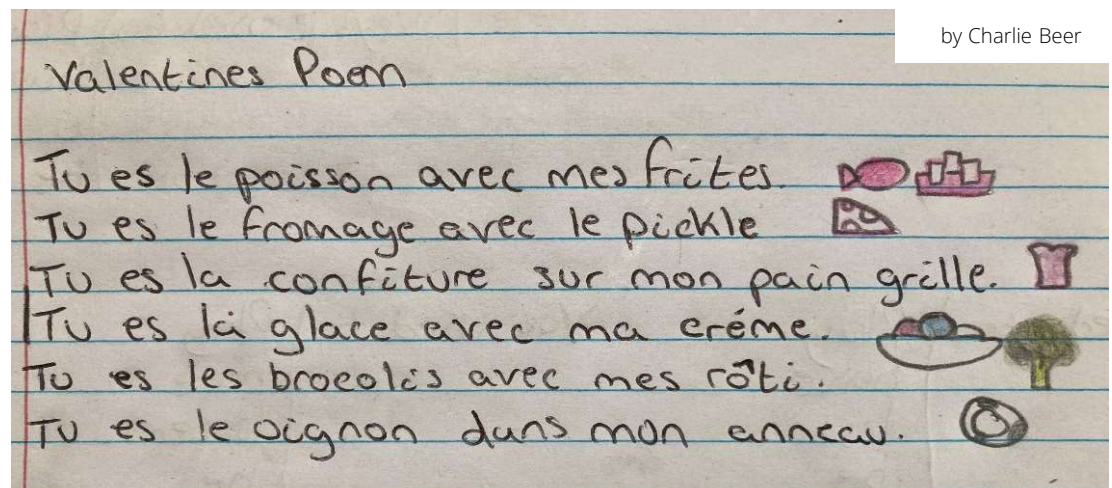 by Charlie Beer
Valentines Poem
Tu es le poisson avec mes frites.
Tu es le fromage avec le pickle
Tu es la confiture sur mon pain grille.
Tu es la glace avec ma créme.
Tu es les brocolis avec mes rôti.
Tu es le oignon dans mon anneau.